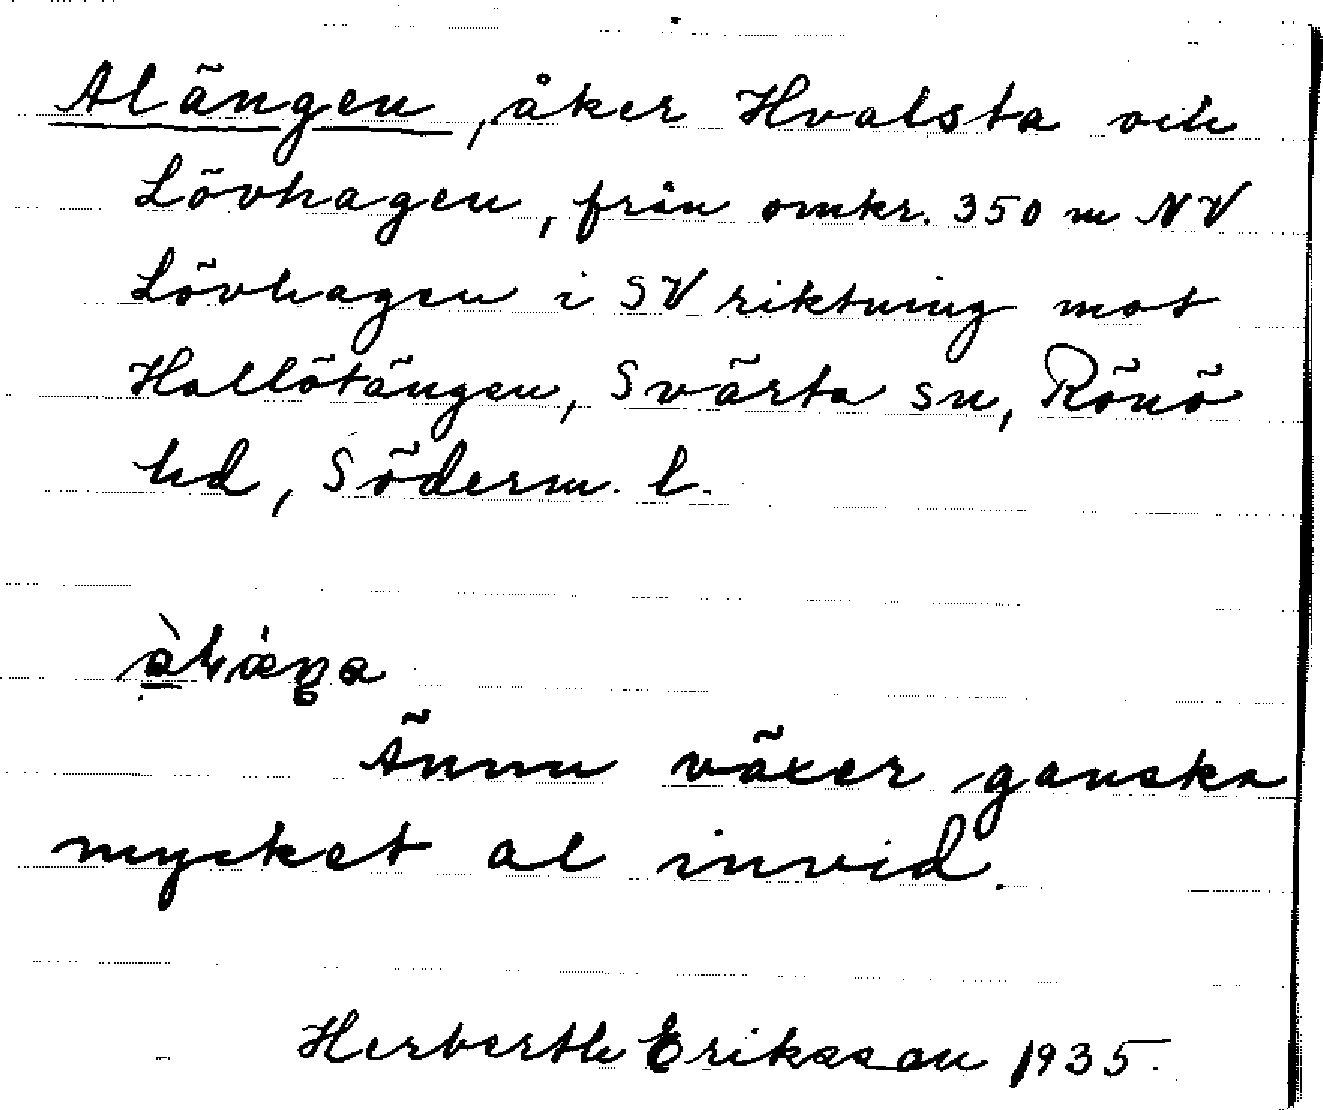 Alängen, åker Hvalsta och
Lövhagen, från omkr. 350 m NV
Lövhagen i SV riktning mot
Hallötängen, Svärta sn, Rönö
hd, Söderm. l.
Ännu växer ganska
mycket al invid.
Herberth Eriksson 1935.